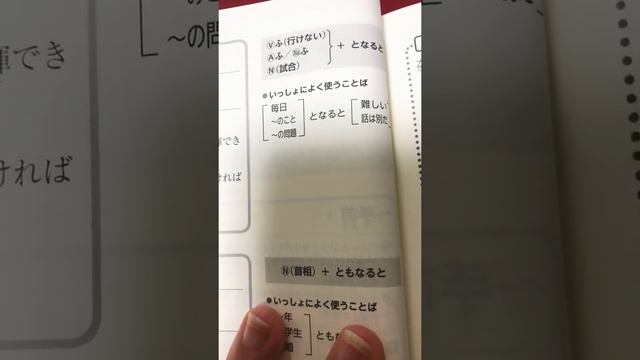 Ⓥふ(行けない)
Ⓐふ/ふ
Ⓝ(試合)
+ となると
●いっしょによく使うことば
毎日
～のこと
～の問題
となると
難しい
話は別だ
Ⓝ(首相) + ともなると
●いっしょによく使うことば
年
学生
ともな
でき
ければ